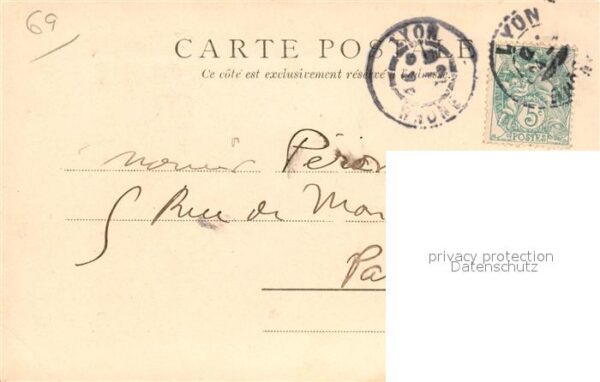 69
CARTE POSTALE
Ce côté est exclusivement réservé à l'adresse
LYON
RHONE
LYON
RHONE
5
POSTES
Monsieur Péron
5 Rue de Mon
Pa
privacy protection
Datenschutz